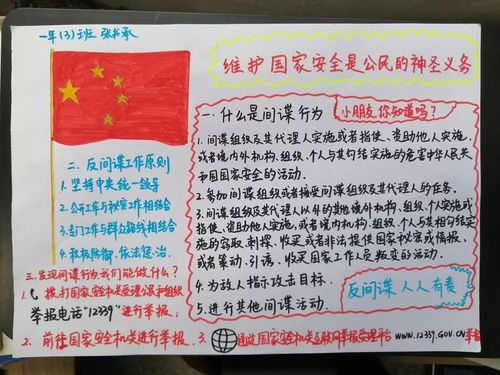 一年(3)班 张书承
维护国家安全是公民的神圣义务
一.什么是间谍行为
小朋友你知道吗?
1.间谍组织及其代理人实施或者指使、资助他人实施,
或者境内外机构、组织、个人与其勾结实施的危害中华人民共
和国国家安全的活动.
2.参加间谍组织或者接受间谍组织及其代理人的任务.
3.间谍组织及其代理人以外的其他境外机构、组织、个人实施或
指使、资助他人实施,或者境内机构、组织、个人与其相勾结实
施的窃取、刺探、收买或者非法提供国家秘密或情报,
或者策动、引诱、收买国家工作人员叛变的活动.
4.为敌人指示攻击目标.
5.进行其他间谍活动.
反间谍 人人有责
二.反间谍工作原则
1.坚持中央统一领导
2.公开工作与秘密工作相结合
3.专门工作与群众路线相结合
4.积极防御、依法惩治.
三.发现间谍行为我们能做什么?
1.拨打国家安全机关受理公民和组织
举报电话"12339"进行举报.
2.前往国家安全机关进行举报.
3.通过国家安全机关互联网举报受理平台 WWW.12339.GOV.CN举报